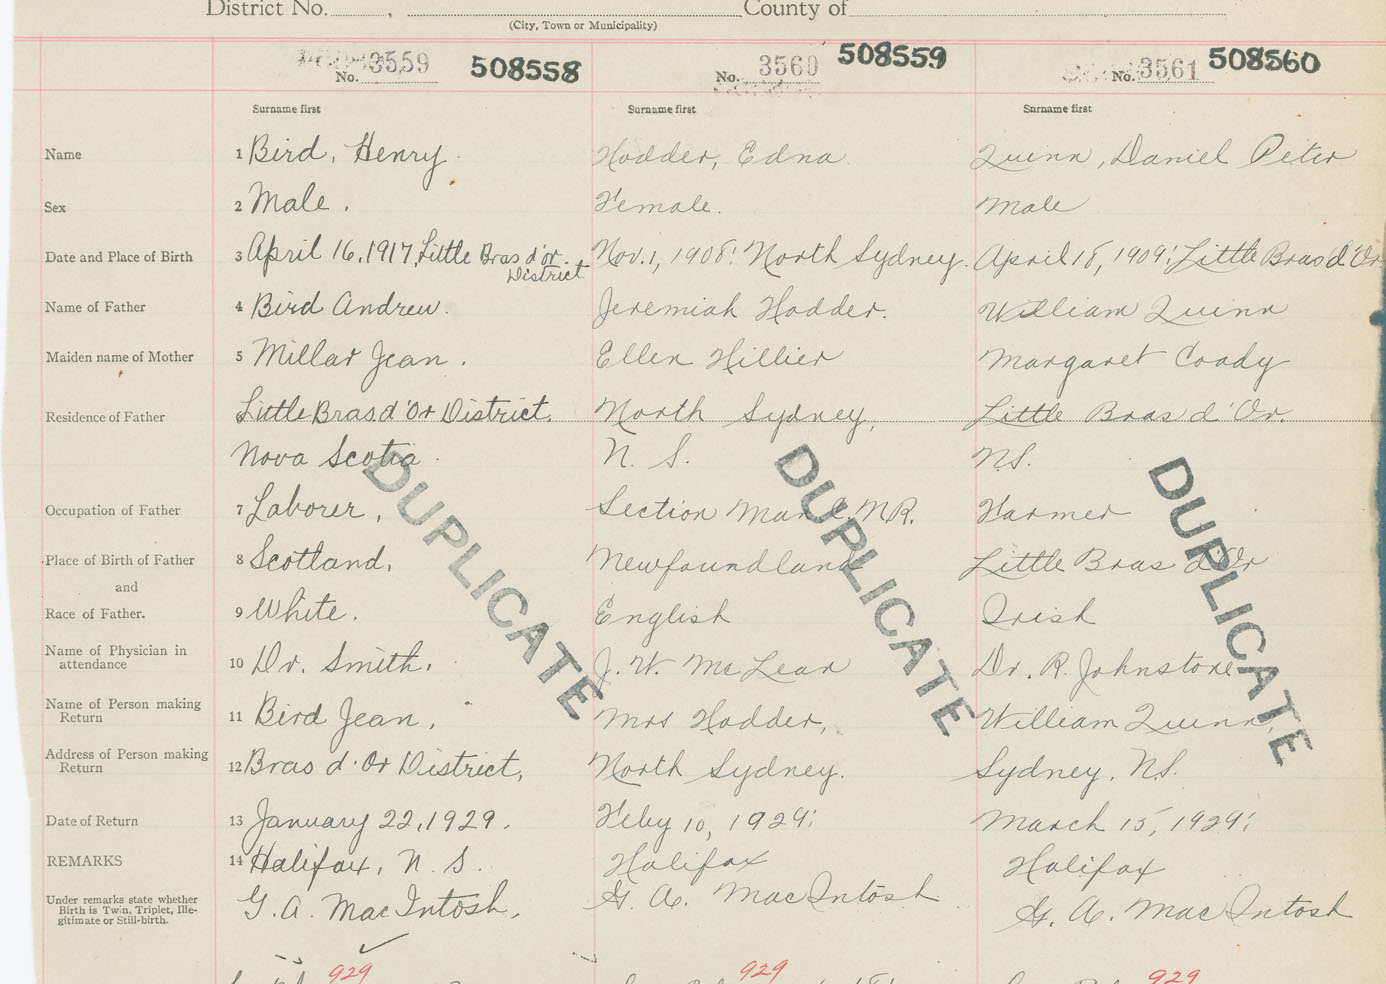 District No. , County of
(City, Town or Municipality)
No. 3559 508558 No. 3560 508559 No. 3561 508560
Surname first Surname first Surname first
Name 1 Bird, Henry Hodder, Edna Quinn, Daniel Peter
Sex 2 Male. Female. Male
Date and Place of Birth 3 April 16, 1917, Little Bras d'or District Nov. 1, 1908: North Sydney. April 18, 1909: Little Bras d'Or
Name of Father 4 Bird Andrew. Jeremiah Hodder. William Quinn
Maiden name of Mother 5 Millar Jean. Ellen Hillier Margaret Coady
Residence of Father 6 Little Bras d'Or District. North Sydney, Little Bras d'Or.
Nova Scotia. N. S. NS.
Occupation of Father 7 Laborer, Section Man C.N.R. Farmer
Place of Birth of Father 8 Scotland, Newfoundland Little Bras d'Or
and
Race of Father. 9 White. English Irish
Name of Physician in attendance 10 Dr. Smith. J. W. McLean Dr. R. Johnstone
Name of Person making Return 11 Bird Jean, Mrs Hodder, William Quinn,
Address of Person making Return 12 Bras d'Or District, North Sydney. Sydney, N.S.
Date of Return 13 January 22, 1929. Feby 10, 1929: March 15, 1929:
REMARKS 14 Halifax, N. S. Halifax Halifax
Under remarks state whether Birth is Twin, Triplet, Illegitimate or Still-birth. G. A. MacIntosh, G. A. MacIntosh G. A. MacIntosh
DUPLICATE DUPLICATE DUPLICATE
929 929 929